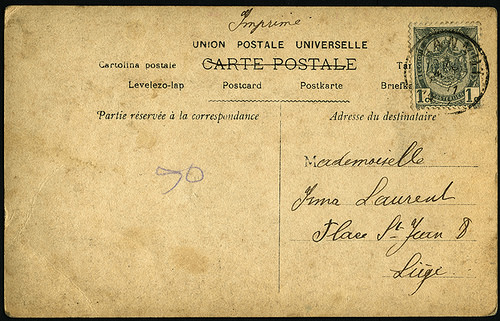 Imprimé
UNION POSTALE UNIVERSELLE
Cartolina postale CARTE POSTALE
Levelezo-lap Postcard Postkarte
Partie réservée à la correspondance
Adresse du destinataire
50
Mademoiselle
Irma Laurent
Place St Jean 8
Liège
1 1